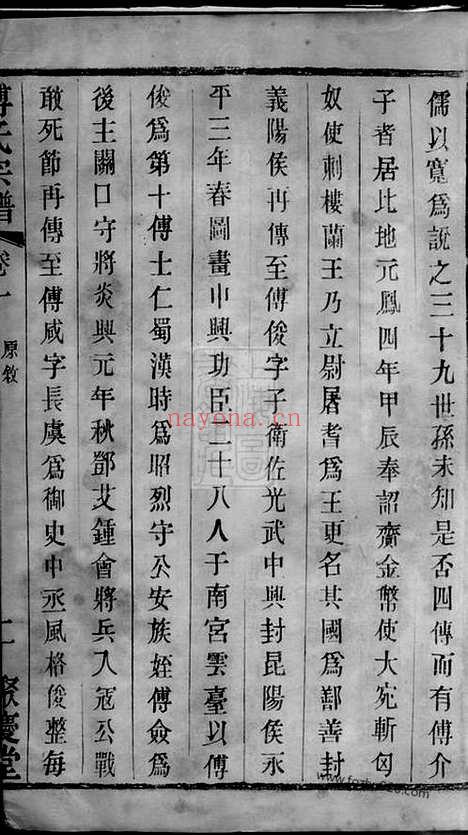 儒以寬爲說之三十九世孫未知是否四傳而有傅介
子者居北地元鳳四年甲辰奉詔齎金幣使大宛斬匈
奴使刺樓蘭王乃立尉屠耆爲王更名其國爲鄯善封
義陽侯再傳至傅俊字子衛佐光武中興封昆陽侯永
平三年春圖畫中興功臣二十八人于南宮雲臺以傅
俊爲第十傅士仁蜀漢時爲昭烈守公安族姪傅僉爲
後主關口守將炎興元年秋鄧艾鍾會將兵入寇公戰
敢死節再傳至傅咸字長虞爲御史中丞風格俊整每
傅氏宗譜 卷一 原敘 二 聚慶堂
nayona.cn